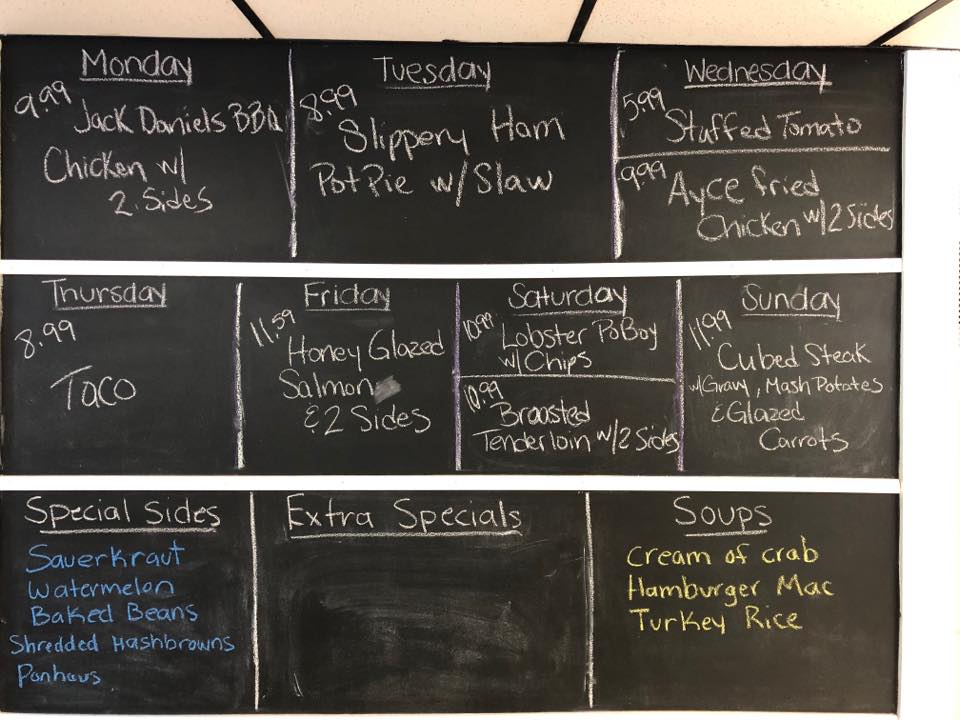 Monday
9.99 Jack Daniels BBQ
Chicken w/
2 Sides
Tuesday
8.99
Slippery Ham
Pot Pie w/ Slaw
Wednesday
5.99 Stuffed Tomato
9.99 Ayce fried
Chicken w/ 2 Sides
Thursday
8.99
Taco
Friday
11.59
Honey Glazed
Salmon
& 2 Sides
Saturday
10.99 Lobster PoBoy
w/ Chips
10.99
Broasted
Tenderloin w/ 2 Sides
Sunday
11.99
Cubed Steak
w/ Gravy, Mash Potatoes
& Glazed
Carrots
Special Sides
Sauerkraut
Watermelon
Baked Beans
Shredded Hashbrowns
Panhaus
Extra Specials
Soups
Cream of crab
Hamburger Mac
Turkey Rice